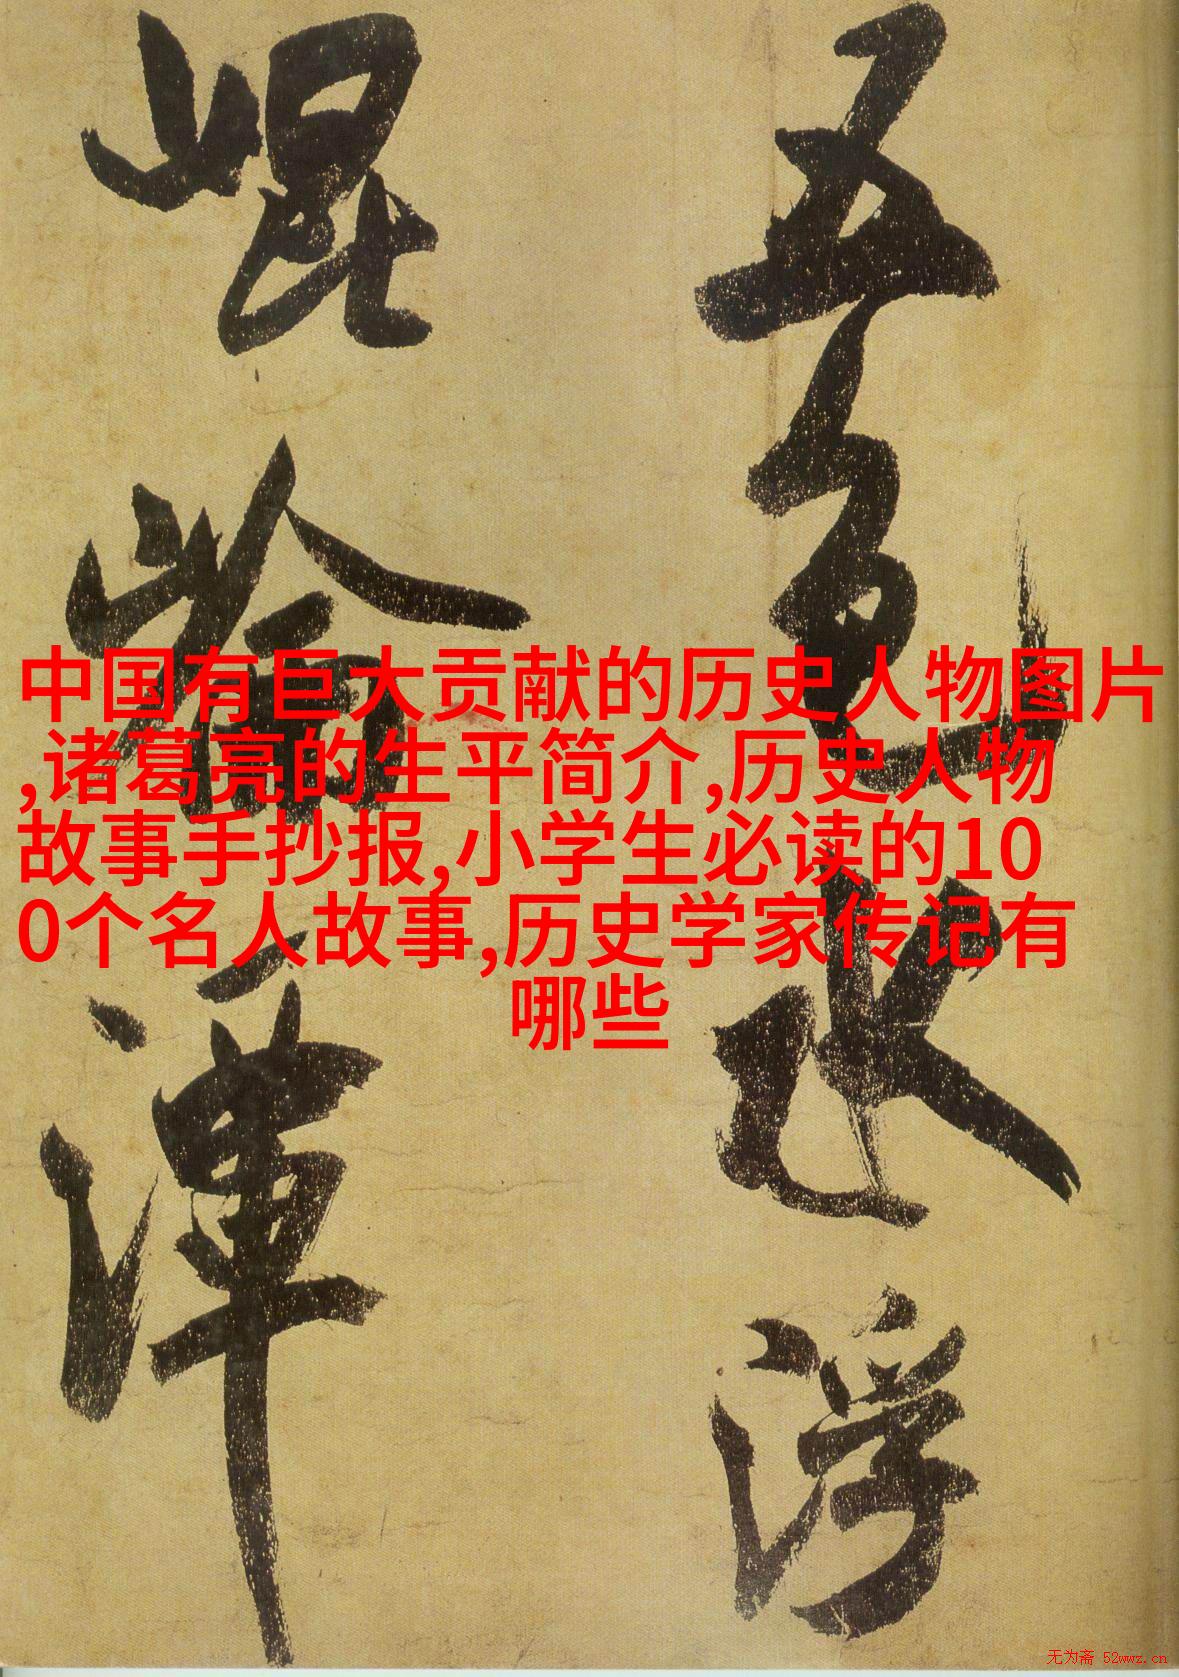 五色水浮
崐崘渾
中国有巨大贡献的历史人物图片
,诸葛亮的生平简介,历史人物
故事手抄报,小学生必读的10
0个名人故事,历史学家传记有
哪些
无为斋 52wwz.cn